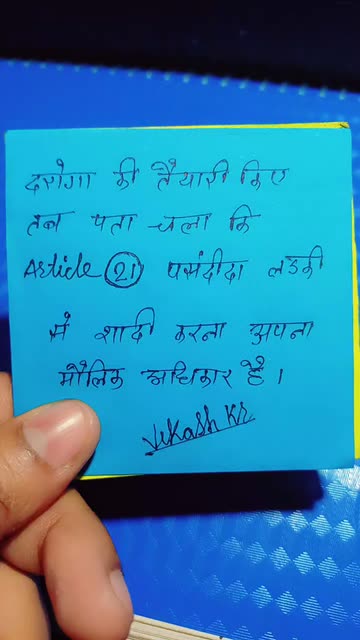 दरोगा की तैयारी किए
तब पता चला कि
Article (21) पसंदीदा लडकी
से शादी करना अपना
मौलिक अधिकार है।
Vikash Kr.